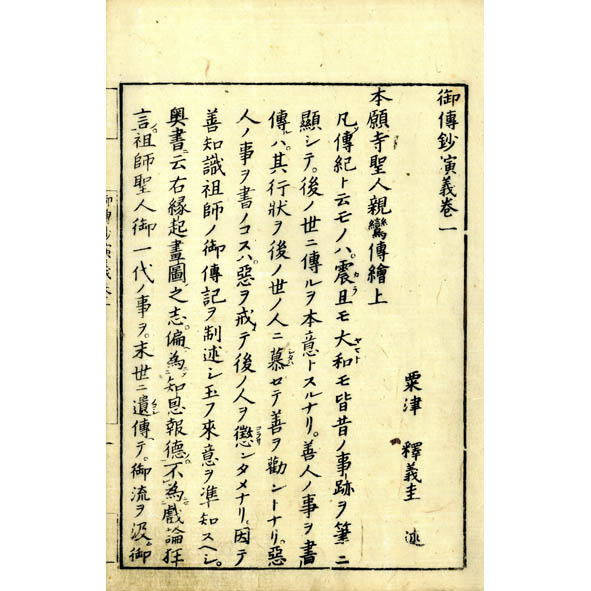 御傳鈔演義卷一
粟津 釋義圭 述
本願寺聖人親鸞傳繪上
凡傳紀ト云モノハ。震旦モ大和モ皆昔ノ事跡ヲ筆ニ
顯シテ。後ノ世ニ傳ルヲ本意トスルナリ。善人ノ事ヲ書
傳ハ。其行狀ヲ後ノ世ノ人ニ慕セテ善ヲ勸ントナリ。惡
人ノ事ヲ書ノコスハ。惡ヲ戒テ後ノ人ヲ懲ンタメナリ。因テ
善知識祖師ノ御傳記ヲ制述シ玉フ來意ヲ準知スヘシ。
奧書ニ云右緣起畫圖之志。偏為知恩報德。不為戲論狂
言。祖師聖人御一代ノ事ヲ。末世ニ遺傳テ。御流ヲ汲。御